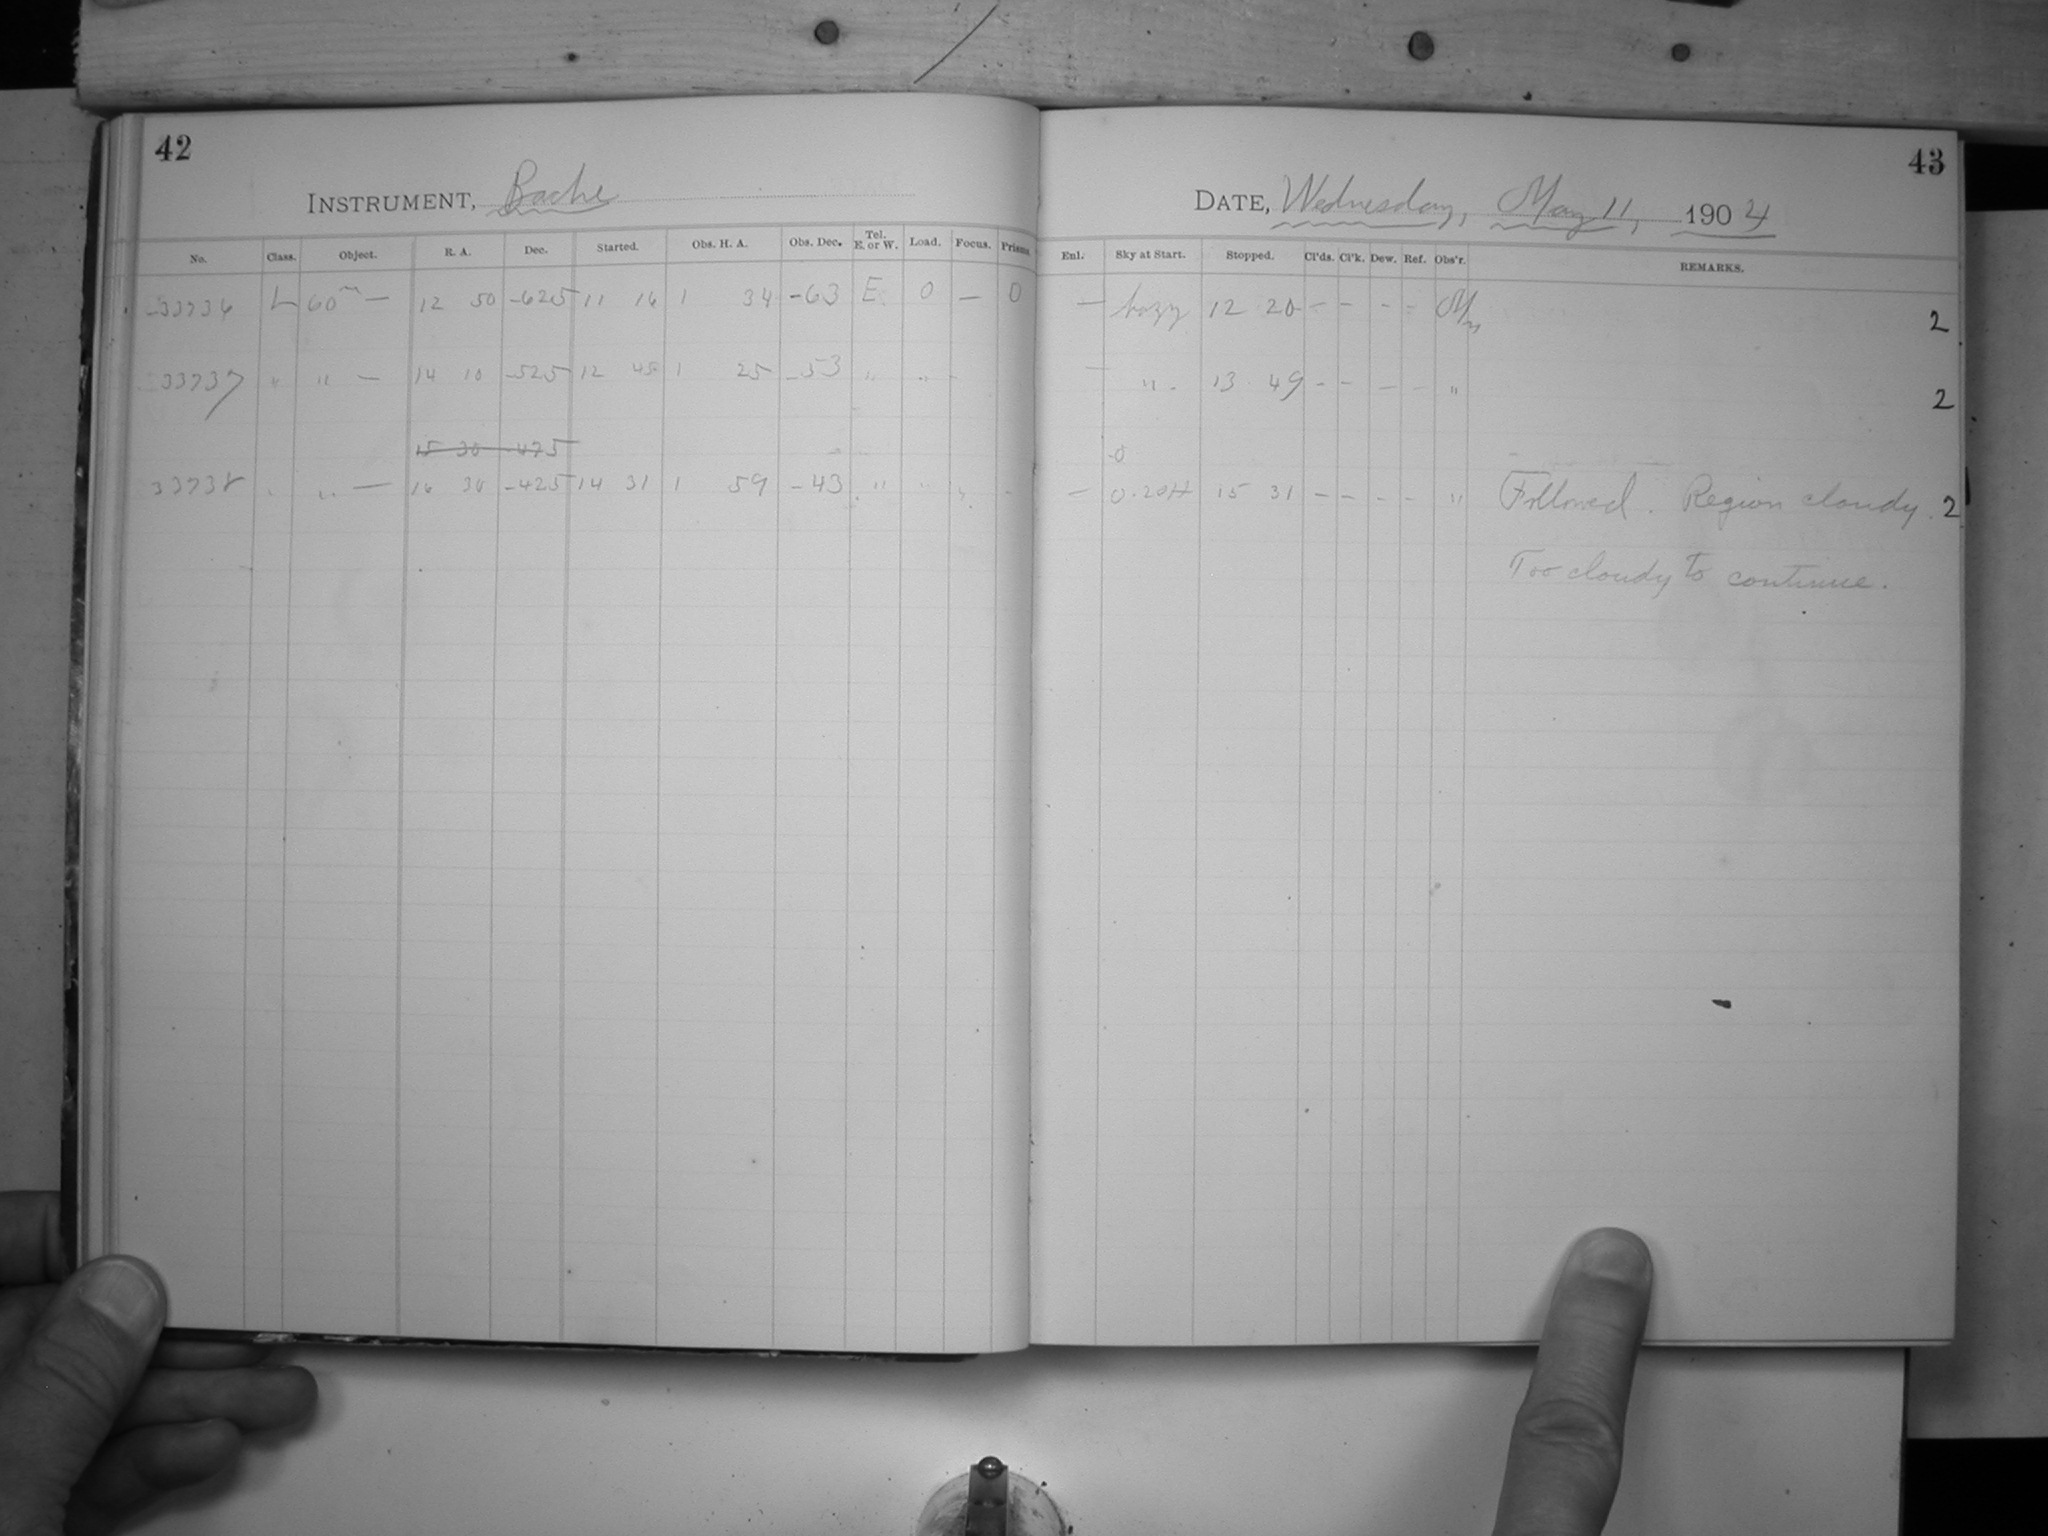 42
INSTRUMENT, Bache
No. Class. Object. R. A. Dec. Started. Obs. H. A. Obs. Dec. Tel. E. or W. Load. Focus. Prisms.
33736 L 60m — 12 50 -625 11 16 1 34 -63 E. 0 — 0
33737 " " — 14 10 -525 12 45 1 25 -53 " " -
15 30 -475
33738 " " — 16 30 -425 14 31 1 59 -43 " " " -
43
DATE, Wednesday, May 11, 1904
Enl. Sky at Start. Stopped. Cl'ds. Cl'k. Dew. Ref. Obs'r. REMARKS.
— hazy 12 20 - - - - 2
— " - 13 49 - - - - " 2
0
— 0.20H 15 31 - - - - " Followed. Region cloudy. 2
Too cloudy to continue.